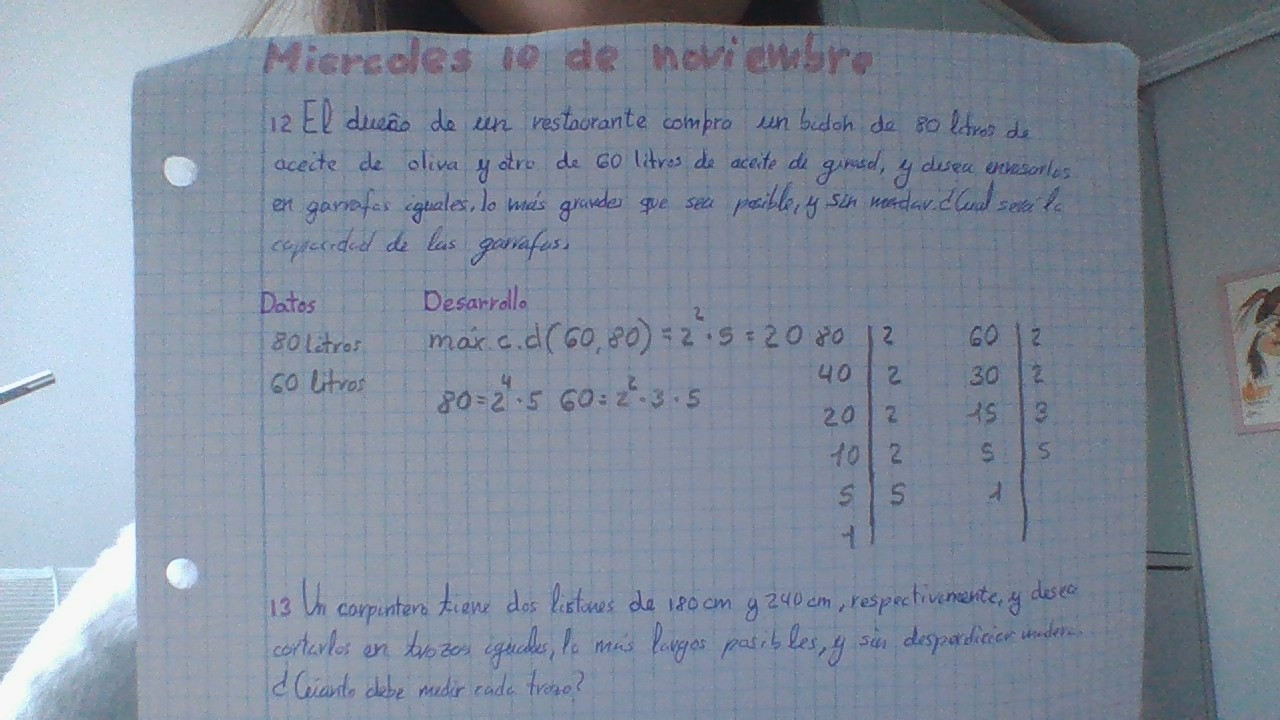 Miercoles 10 de noviembre
12 El dueño de un restaorante compra un bidon de 80 litros de
aceite de oliva y otro de 60 litros de aceite de girasol, y desea envasarlos
en garrafas iguales, lo más grandes que sea posible, y sin mezclar. ¿Cual será la
capacidad de las garrafas.
Datos Desarrollo
80 litros máx.c.d(60,80) = 2²·5 = 20 80 | 2 60 | 2
60 litros 40 | 2 30 | 2
80=2⁴·5 60=2²·3·5 20 | 2 15 | 3
10 | 2 5 | 5
5 | 5 1
1
13 Un carpintero tiene dos listones de 180 cm y 240 cm, respectivamente, y desea
cortarlos en trozos iguales, lo más largos posibles, y sin desperdiciar madera.
¿Cuanto debe medir cada trozo?